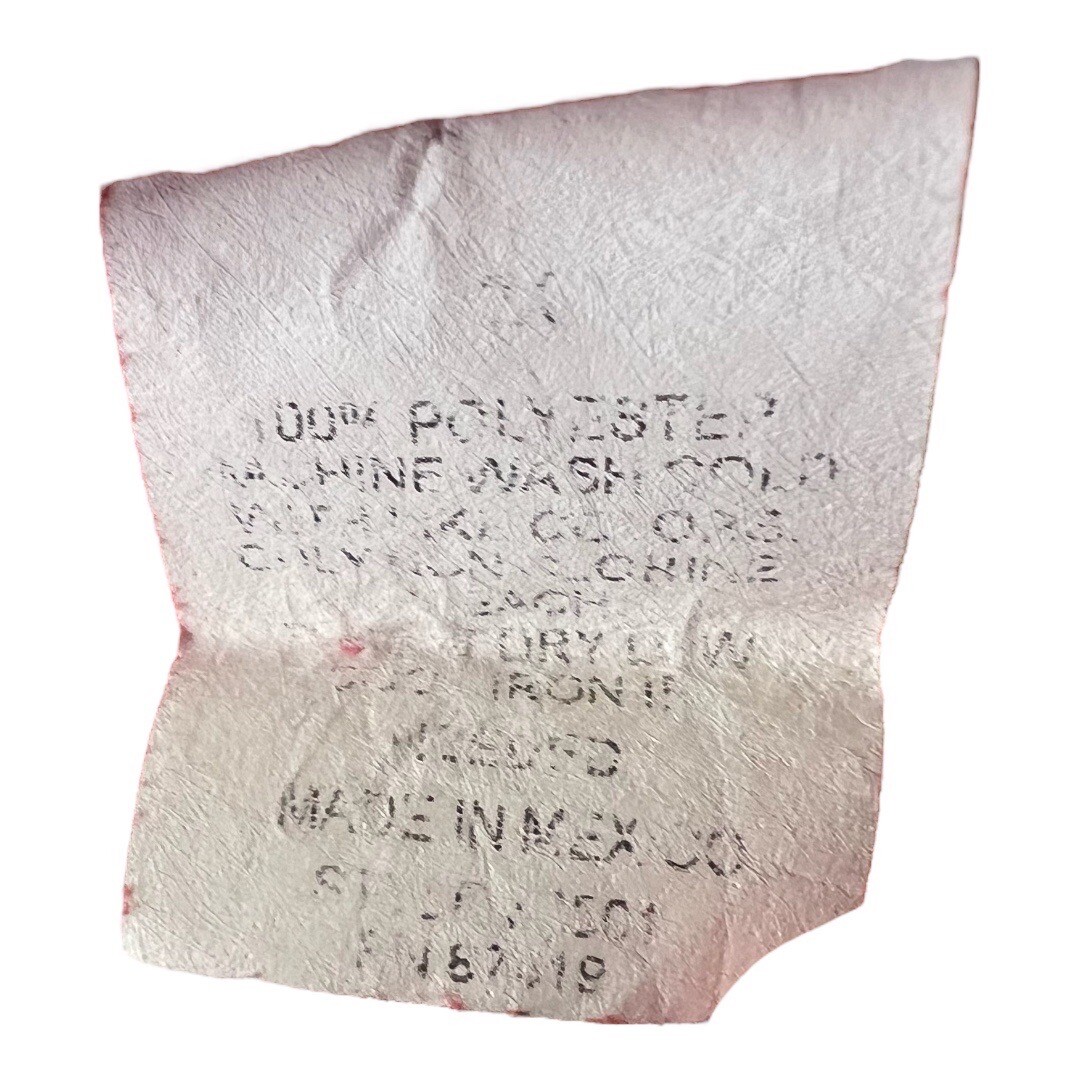 100% POLYESTER
MACHINE WASH COLD
WITH LIKE COLORS.
ONLY NON-CHLORINE
BLEACH
DRY LOW
COOL IRON IF
NEEDED
MADE IN MEXICO
STYLE
RN